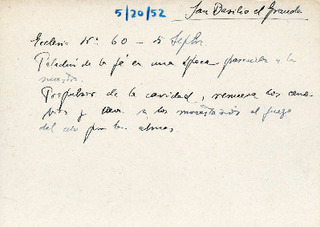 5/20/52
San Basilio el Grande
Ecclesia Nº 60 - 5 Sepbre
Paladín de la fe en una época parecida a la
nuestra.
Propulsor de la caridad, renueva los
y lleva a los monasterios el fuego
del celo por las almas.